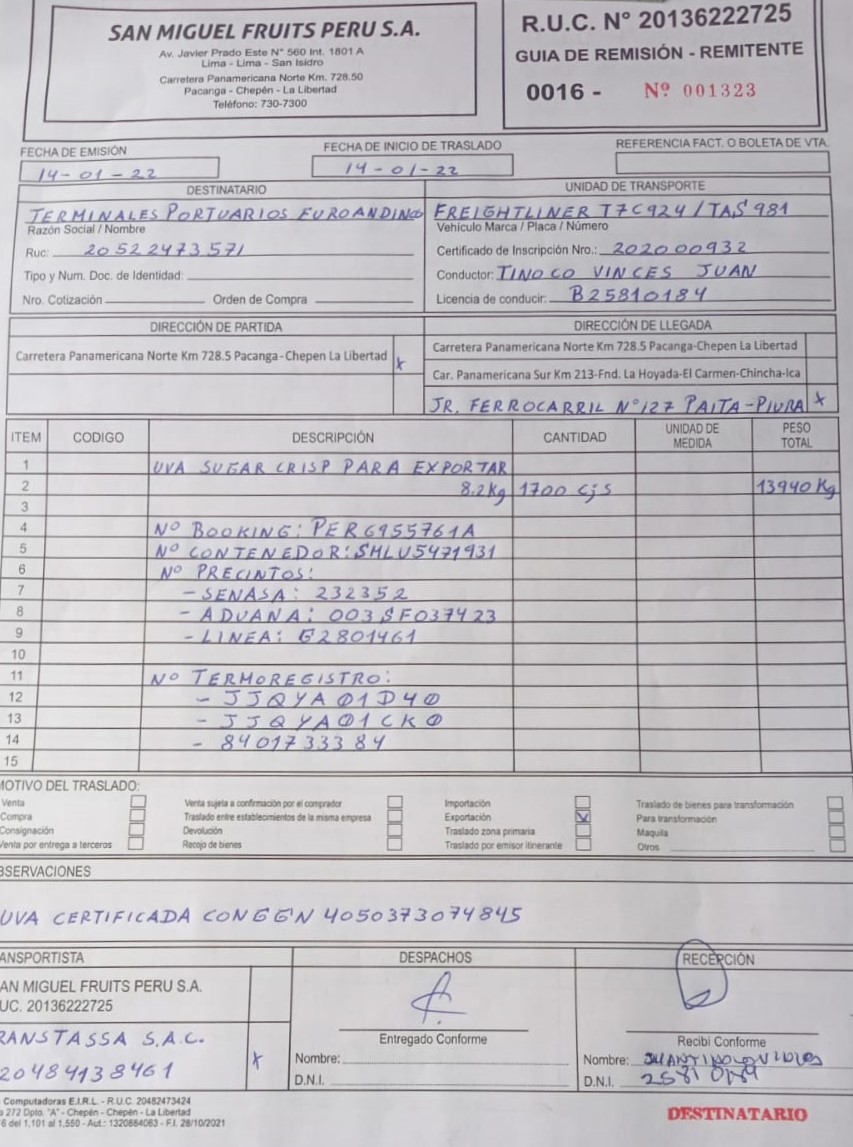 SAN MIGUEL FRUITS PERU S.A.
Av. Javier Prado Este N° 560 Int. 1801 A
Lima - Lima - San Isidro
Carretera Panamericana Norte Km. 728.50
Pacanga - Chepén - La Libertad
Teléfono: 730-7300
R.U.C. N° 20136222725
GUIA DE REMISIÓN - REMITENTE
0016 - Nº 001323
FECHA DE EMISIÓN
14-01-22
FECHA DE INICIO DE TRASLADO
14-01-22
REFERENCIA FACT. O BOLETA DE VTA.
DESTINATARIO
TERMINALES PORTUARIOS EUROANDINO
Razón Social / Nombre
Ruc: 20522473571
Tipo y Num. Doc. de Identidad:
Nro. Cotización Orden de Compra
UNIDAD DE TRANSPORTE
FREIGHTLINER T7C924/TAS981
Vehículo Marca / Placa / Número
Certificado de Inscripción Nro.: 202000932
Conductor: TINOCO VINCES JUAN
Licencia de conducir: B25810184
DIRECCIÓN DE PARTIDA
Carretera Panamericana Norte Km 728.5 Pacanga-Chepen La Libertad x
DIRECCIÓN DE LLEGADA
Carretera Panamericana Norte Km 728.5 Pacanga-Chepen La Libertad
Car. Panamericana Sur Km 213-Fnd. La Hoyada-El Carmen-Chincha-Ica
JR. FERROCARRIL N°127 PAITA-PIURA x
ITEM CODIGO DESCRIPCIÓN CANTIDAD UNIDAD DE MEDIDA PESO TOTAL
1 UVA SUGAR CRISP PARA EXPORTAR
2 8.2kg 1700 cjs 13940 Kg
3
4 Nº BOOKING: PER6955761A
5 Nº CONTENEDOR: SMLU5471931
6 Nº PRECINTOS:
7 - SENASA: 232352
8 - ADUANA: 003SF037423
9 - LINEA: G2801461
10
11 Nº TERMOREGISTRO:
12 - JJQYA01D40
13 - JJQYA01CK0
14 - 8401733384
15
MOTIVO DEL TRASLADO:
Venta
Compra
Consignación
Venta por entrega a terceros
Venta sujeta a confirmación por el comprador
Traslado entre establecimientos de la misma empresa
Devolución
Recojo de bienes
Importación
Exportación
Traslado zona primaria
Traslado por emisor itinerante
Traslado de bienes para transformación
Para transformación
Maquila
Otros
BSERVACIONES
UVA CERTIFICADA CON GGN 4050373074845
ANSPORTISTA
AN MIGUEL FRUITS PERU S.A.
UC. 20136222725
RANSTASSA S.A.C.
20484138461 x
DESPACHOS
Entregado Conforme
Nombre:
D.N.I.
RECEPCIÓN
Recibi Conforme
Nombre: JUAN TINOCO VINCES
D.N.I. 25810184
Computadoras E.I.R.L. - R.U.C. 20482473424
272 Dpto. "A" - Chepén - Chepén - La Libertad
6 del 1,101 al 1,550 - Aut.: 1320884063 - F.I. 28/10/2021
DESTINATARIO